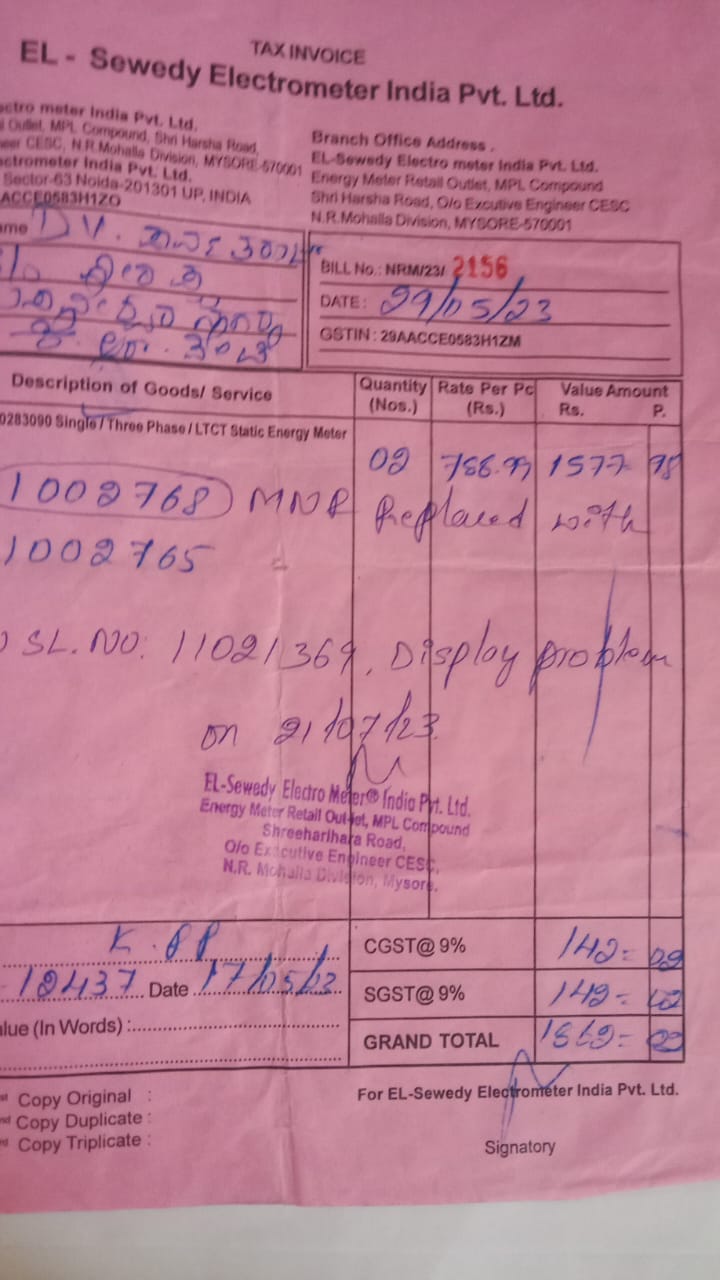 TAX INVOICE
EL - Sewedy Electrometer India Pvt. Ltd.
ectro meter India Pvt. Ltd.
l Outlet, MPL Compound, Shri Harsha Road,
neer CESC, N.R.Mohalla Division, MYSORE-570001
ectrometer India Pvt. Ltd.
Sector-63 Noida-201301 UP, INDIA
ACCE0583H1ZO
Branch Office Address .
EL-Sewedy Electro meter India Pvt. Ltd.
Energy Meter Retail Outlet, MPL Compound
Shri Harsha Road, O/o Excutive Engineer CESC
N.R.Mohalla Division, MYSORE-570001
ame DV.
BILL No.: NRM/23/ 2156
DATE: 29/05/23
GSTIN : 29AACCE0583H1ZM
Description of Goods/ Service Quantity (Nos.) Rate Per Pc (Rs.) Value Amount Rs. P.
0283090 Single / Three Phase / LTCT Static Energy Meter
02 1577 98
1002768 MNR Replaced with
1002765
SL. NO: 11021369, Display problem
on 21/07/23
EL-Sewedy Electro Meter® India Pvt. Ltd.
Energy Meter Retail Out-let, MPL Compound
Shreeharihara Road,
O/o Executive Engineer CESC,
N.R. Mohalla Division, Mysore.
CGST@ 9% 142=
12437 Date 17/05/23
SGST@ 9% 142=
alue (In Words) :
GRAND TOTAL
Copy Original :
Copy Duplicate :
Copy Triplicate :
For EL-Sewedy Electrometer India Pvt. Ltd.
Signatory